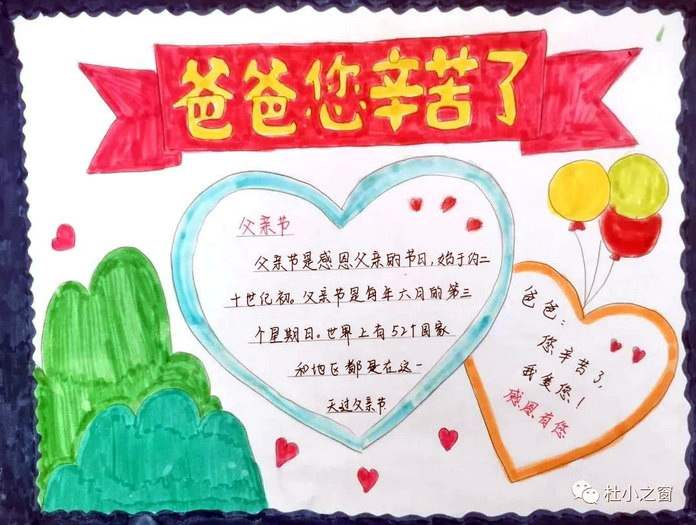 爸爸您辛苦了
父亲节
父亲节是感恩父亲的节日,始于二
十世纪初。父亲节是每年六月的第三
个星期日。世界上有52个国家
和地区都是在这一
天过父亲节
爸爸:
您辛苦了,
我爱您!
感恩有您
杜小之窗